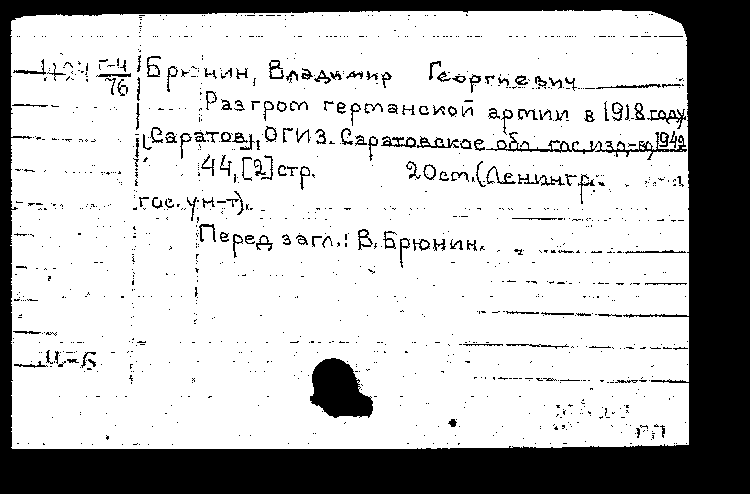 Г-4
76
Брюнин, Владимир Георгиевич
Разгром германской армии в 1918 году.
[Саратов], ОГИЗ. Саратовское обл. гос. изд-во, 1942
44, [2] стр. 20 см. (Ленингр.
гос. ун-т).
Перед загл.: В. Брюнин.